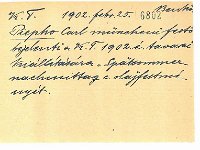 K. T. 1902. febr. 25. 6802
Piepho Carl müncheni festő
bejelenti a K. T. 1902. é. tavaszi
kiállítására „Spätsommer-
nachmittag" c. olajfestmé-
nyét.